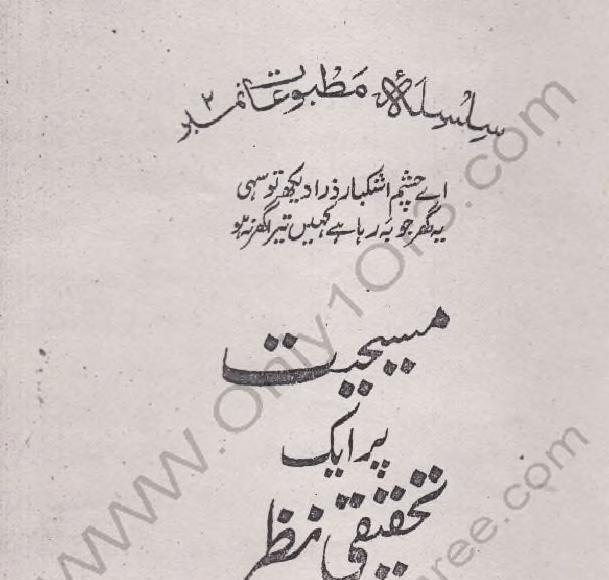 سلسلۂ مطبوعات نمبر ۲
اے چشم اشکبار ذرا دیکھ تو سہی
یہ گھر جو بہ رہا ہے کہیں تیرا گھر نہ ہو
مسیحیت
پر ایک
تحقیقی نظر
www.Only1Or3.com
ree.com